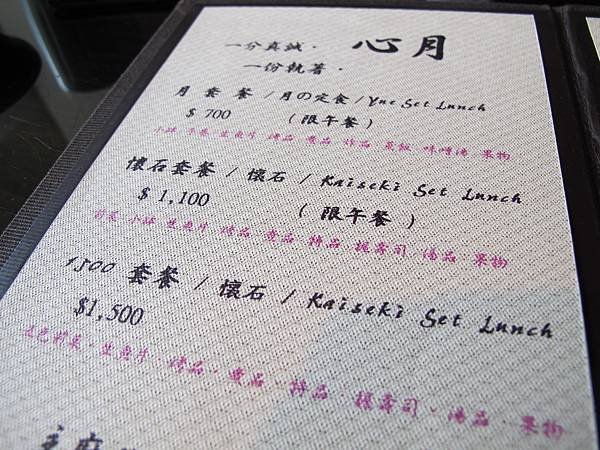 一分真誠． 心月
一份執著．
月 套 餐 / 月の定食 / Yue Set Lunch
$ 700 ( 限午餐 )
小缽 手卷 生魚片 烤品 煮品 炸品 菜飯 味噌湯 果物
懷石套餐 / 懷石 / Kaiseki Set Lunch
$ 1,100 ( 限午餐 )
前菜 小缽 生魚片 烤品 煮品 特品 握壽司 湯品 果物
1500 套餐 / 懷石 / Kaiseki Set Lunch
$1,500
前菜．生魚片．烤品．煮品．特品．握壽司．湯品．果物